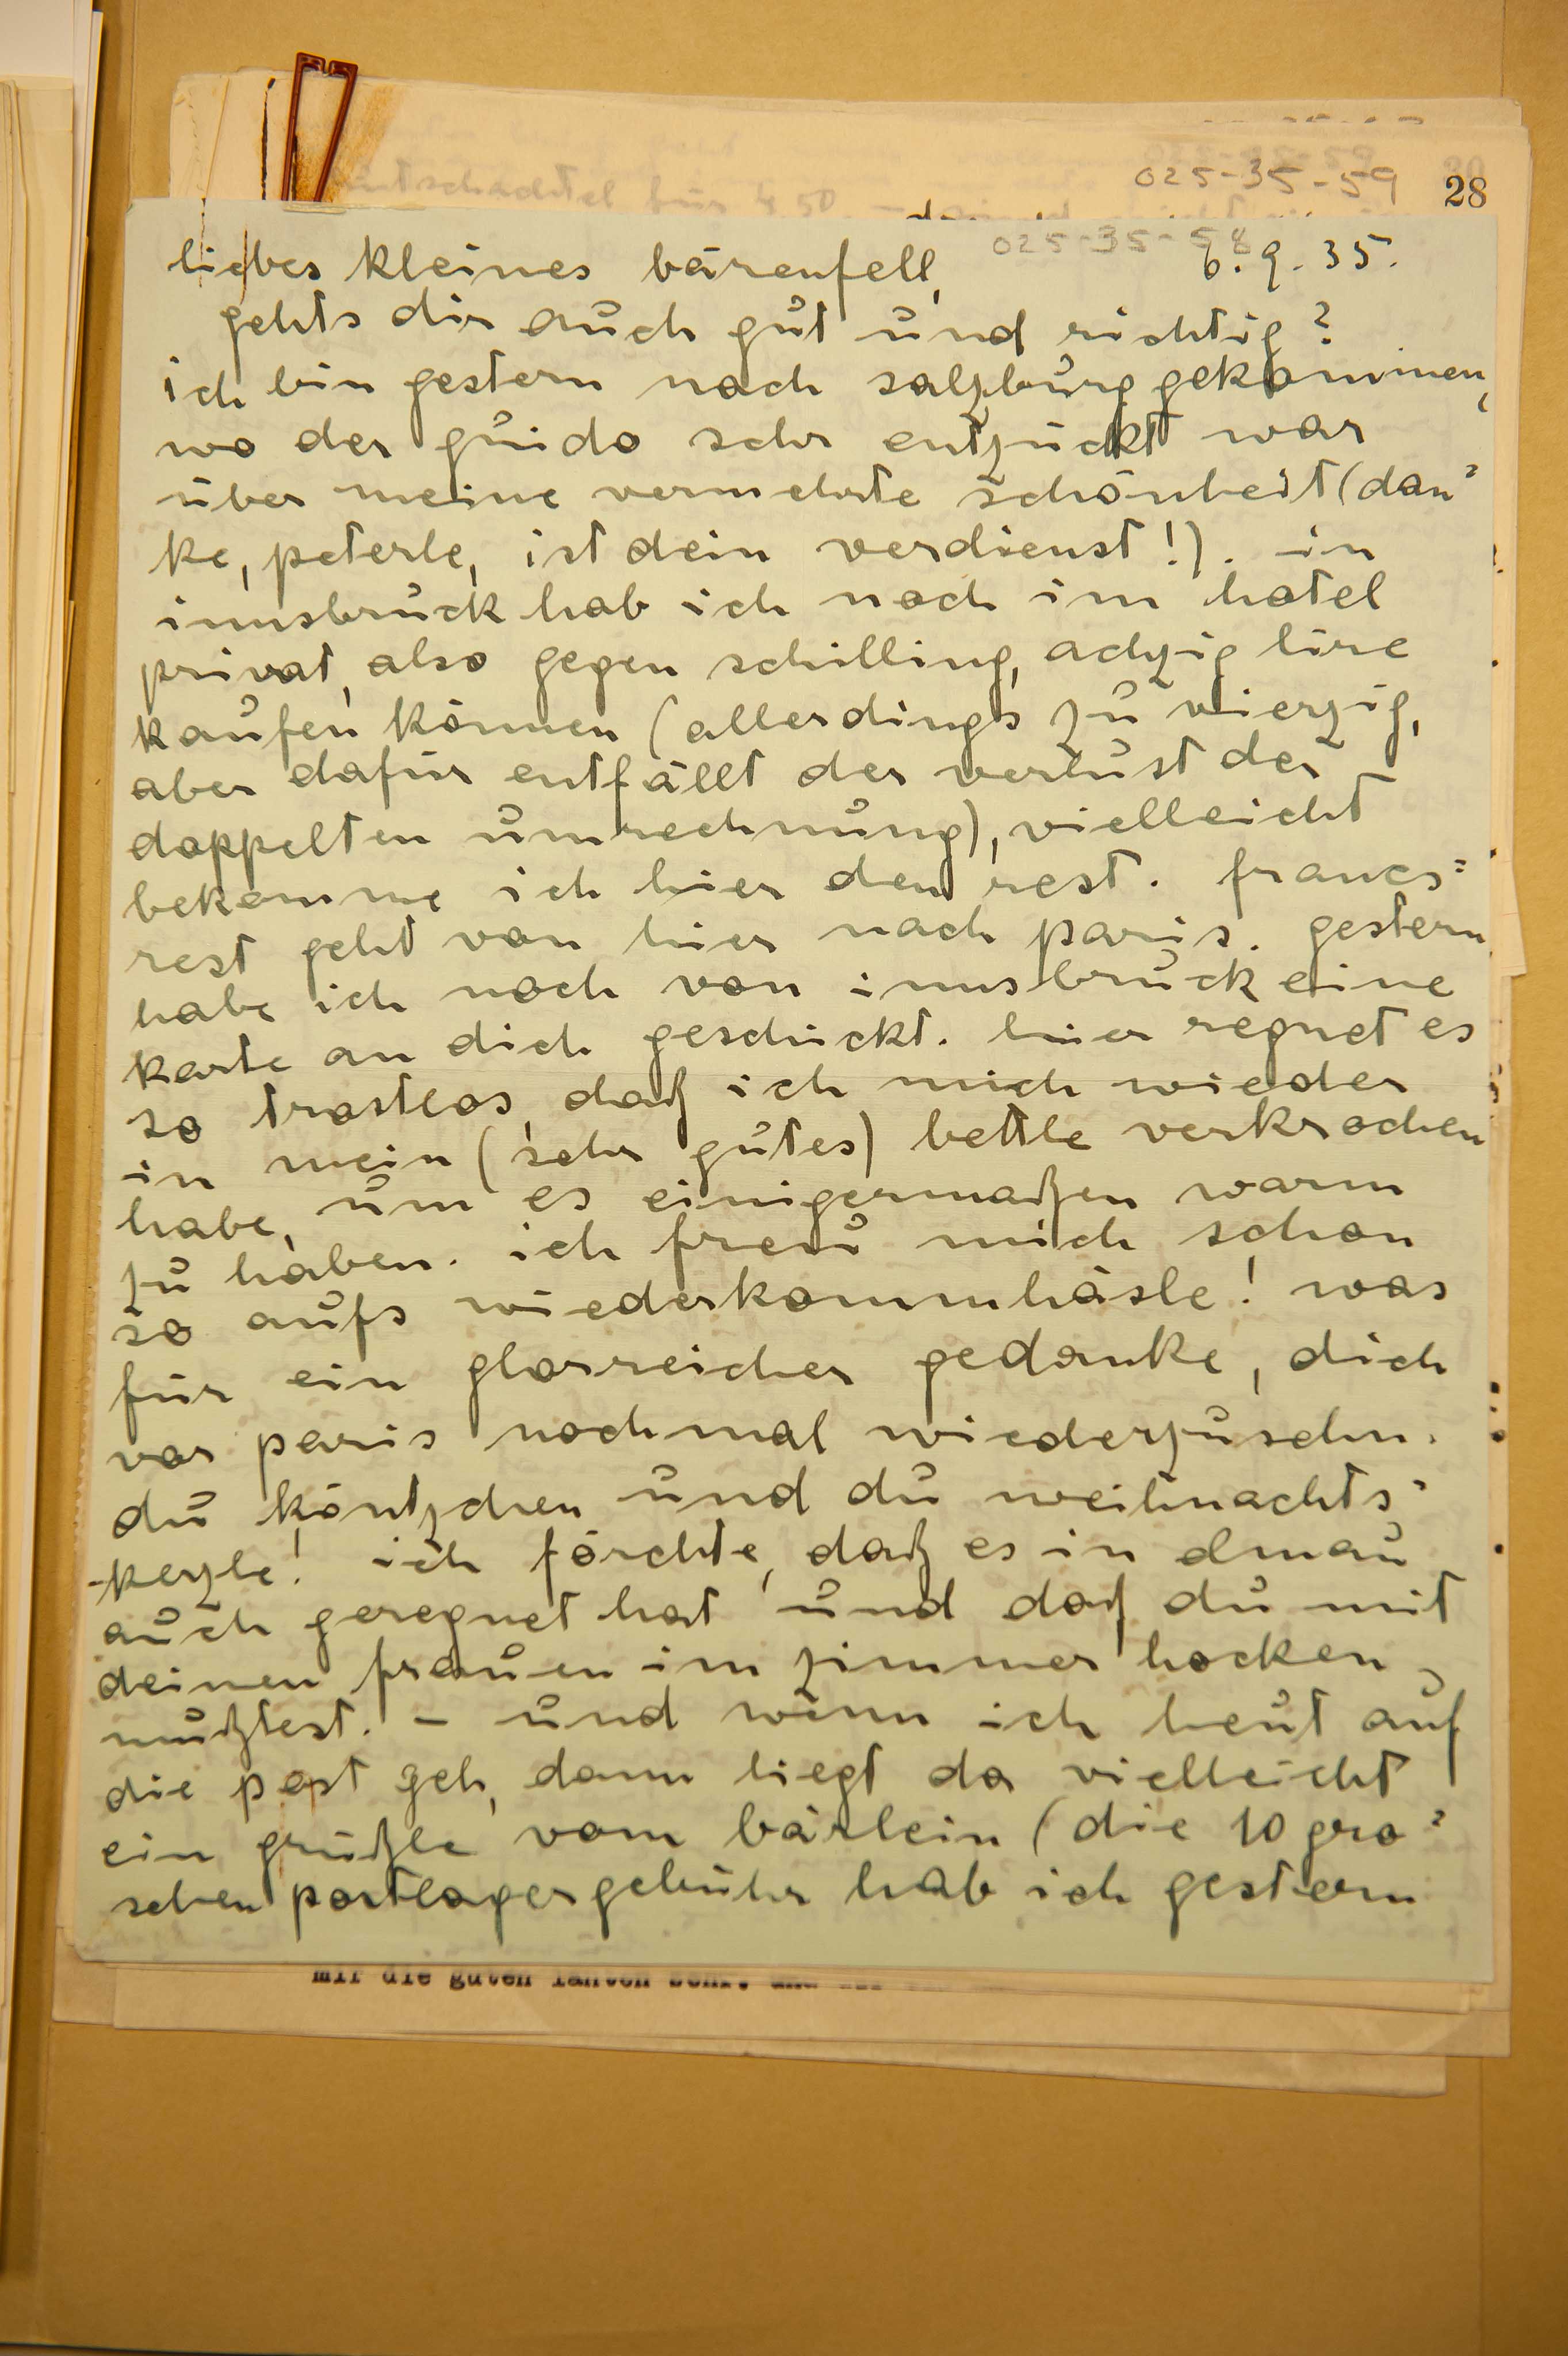 025-35-59 28
025-35-58
liebes kleines bärenfell, 6. 9. 35.
gehts dir auch gut und richtig?
ich bin gestern nach salzburg gekommen,
wo der guido sehr entzückt war
über meine vermehrte schönheit (dan=
ke, peterle, ist dein verdienst!). in
innsbruck hab ich noch im hotel
privat, also gegen schilling, achzig lire
kaufen können (allerdings zu vierzig,
aber dafür entfällt der verlust der
doppelten umrechnung), vielleicht
bekomme ich hier den rest. francs=
rest geht von hier nach paris. gestern
habe ich noch von innsbruck eine
karte an dich geschickt. hier regnet es
so trostlos, daß ich mich wieder
in mein (sehr gutes) bettle verkrochen
habe, um es einigermaßen warm
zu haben. ich freu mich schon
so aufs wiederkommhäsle! was
für ein glorreicher gedanke, dich
vor paris nochmal wiederzusehn.
du käutzchen und du weihnachts=
-kerzle! ich förchte, daß es in elmau
auch geregnet hat und daß du mit
deinen frauen im zimmer hocken
mußtest. – und wenn ich heut auf
die post geh, dann liegt da vielleicht
ein grüßle vom bärlein (die 10 gro=
schen postlagergebühr hab ich gestern
mir die guten